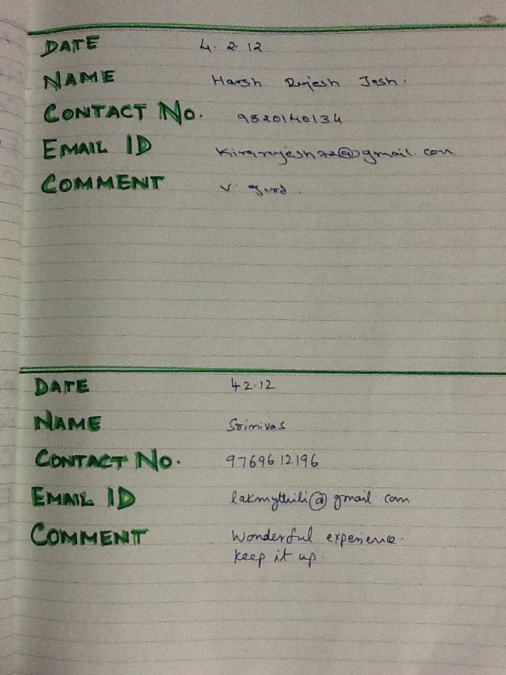 DATE 4.2.12
NAME Harsh Rajesh
CONTACT NO. 9820140134
EMAIL ID
COMMENT V. good.
DATE 4.2.12
NAME Srinivas
CONTACT NO. 9769612196
EMAIL ID lakmythili@gmail.com
COMMENT Wonderful experience.
keep it up.